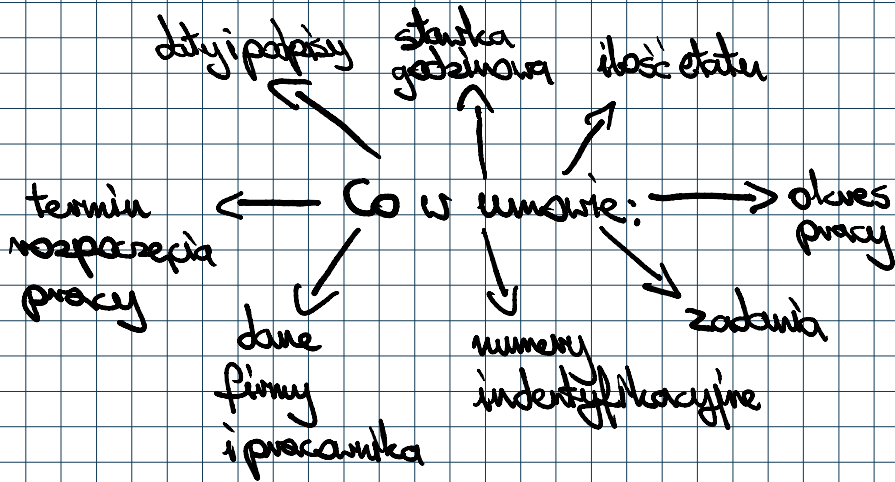 daty i podpisy
stawka
godzinowa
ilość etatu
Co w umowie:
termin
rozpoczęcia
pracy
okres
pracy
dane
firmy
i pracownika
numery
indentyfikacyjne
zadania